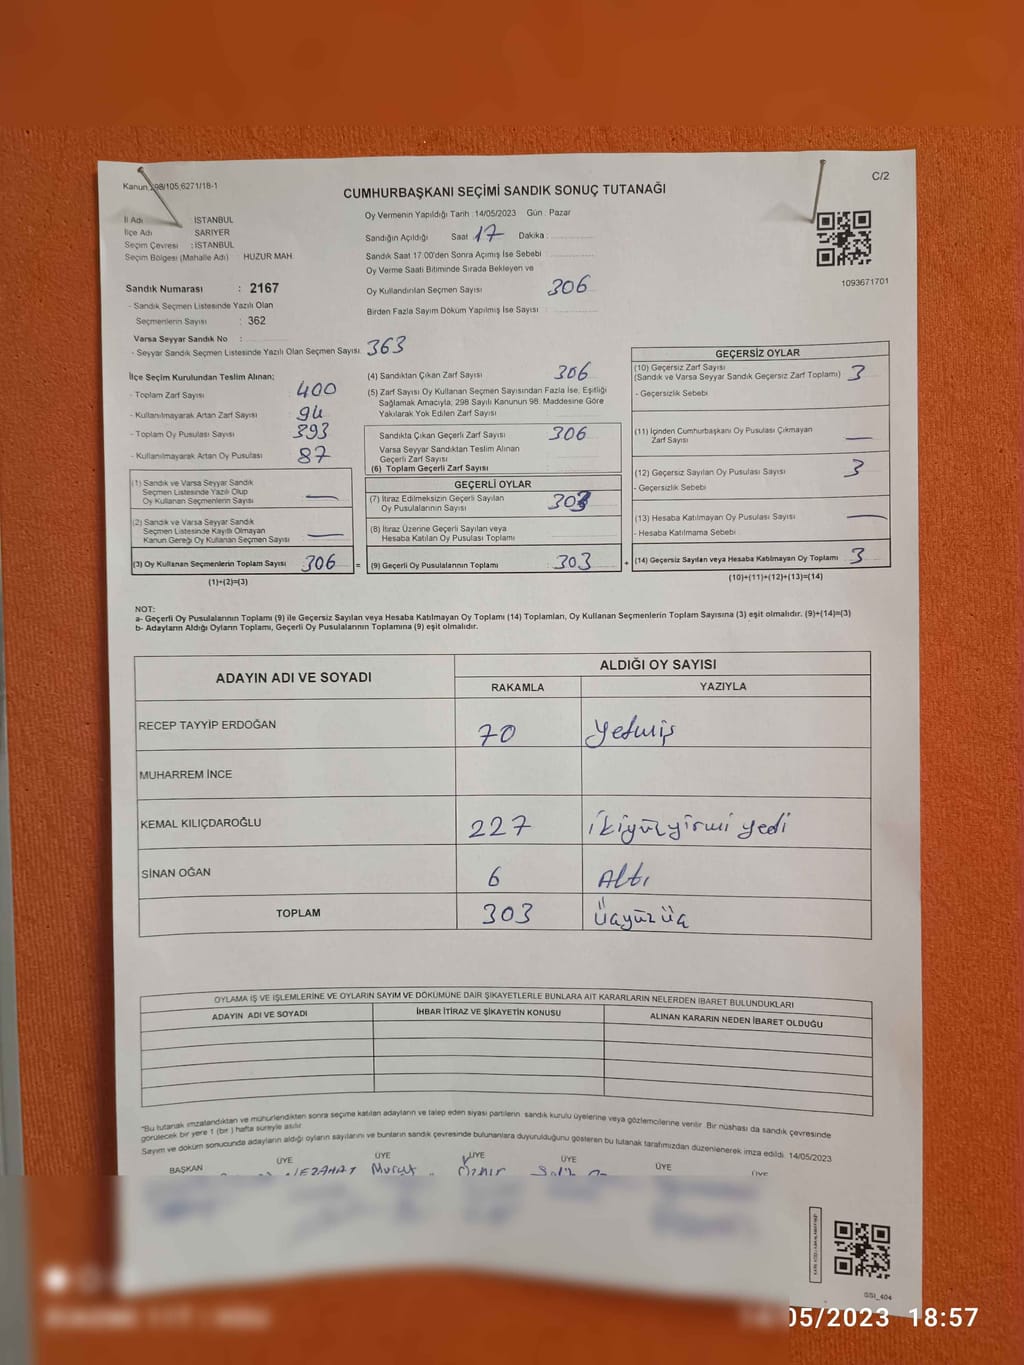 Kanun 298/105,6271/18-1
C/2
CUMHURBAŞKANI SEÇİMİ SANDIK SONUÇ TUTANAĞI
İl Adı : İSTANBUL
İlçe Adı SARIYER
Seçim Çevresi : İSTANBUL
Seçim Bölgesi (Mahalle Adı) HUZUR MAH.
Sandık Numarası : 2167
- Sandık Seçmen Listesinde Yazılı Olan
Seçmenlerin Sayısı : 362
Varsa Seyyar Sandık No :
- Seyyar Sandık Seçmen Listesinde Yazılı Olan Seçmen Sayısı: 363
Oy Vermenin Yapıldığı Tarih : 14/05/2023 Gün : Pazar
Sandığın Açıldığı Saat 17 Dakika :
Sandık Saat 17.00'den Sonra Açımış İse Sebebi :
Oy Verme Saati Bitiminde Sırada Bekleyen ve
Oy Kullandırılan Seçmen Sayısı 306
Birden Fazla Sayım Döküm Yapılmış İse Sayısı :
1093671701
İlçe Seçim Kurulundan Teslim Alınan;
- Toplam Zarf Sayısı : 400
- Kullanılmayarak Artan Zarf Sayısı : 94
- Toplam Oy Pusulası Sayısı : 393
- Kullanılmayarak Artan Oy Pusulası : 87
(1) Sandık ve Varsa Seyyar Sandık
Seçmen Listesinde Yazılı Olup
Oy Kullanan Seçmenlerin Sayısı : —
(2) Sandık ve Varsa Seyyar Sandık
Seçmen Listesinde Kayıtlı Olmayan
Kanun Gereği Oy Kullanan Seçmen Sayısı : —
(3) Oy Kullanan Seçmenlerin Toplam Sayısı 306 =
(1)+(2)=(3)
(4) Sandıktan Çıkan Zarf Sayısı 306
(5) Zarf Sayısı Oy Kullanan Seçmen Sayısından Fazla İse, Eşitliği
Sağlamak Amacıyla, 298 Sayılı Kanunun 98. Maddesine Göre
Yakılarak Yok Edilen Zarf Sayısı :
Sandıkta Çıkan Geçerli Zarf Sayısı : 306
Varsa Seyyar Sandıktan Teslim Alınan
Geçerli Zarf Sayısı
(6) Toplam Geçerli Zarf Sayısı :
GEÇERLİ OYLAR
(7) İtiraz Edilmeksizin Geçerli Sayılan
Oy Pusulalarının Sayısı : 303
(8) İtiraz Üzerine Geçerli Sayılan veya
Hesaba Katılan Oy Pusulası Toplamı :
(9) Geçerli Oy Pusulalarının Toplamı : 303 +
GEÇERSİZ OYLAR
(10) Geçersiz Zarf Sayısı
(Sandık ve Varsa Seyyar Sandık Geçersiz Zarf Toplamı) 3
- Geçersizlik Sebebi
(11) İçinden Cumhurbaşkanı Oy Pusulası Çıkmayan
Zarf Sayısı —
(12) Geçersiz Sayılan Oy Pusulası Sayısı : 3
- Geçersizlik Sebebi
(13) Hesaba Katılmayan Oy Pusulası Sayısı : —
- Hesaba Katılmama Sebebi
(14) Geçersiz Sayılan veya Hesaba Katılmayan Oy Toplamı : 3
(10)+(11)+(12)+(13)=(14)
NOT:
a- Geçerli Oy Pusulalarının Toplamı (9) ile Geçersiz Sayılan veya Hesaba Katılmayan Oy Toplamı (14) Toplamları, Oy Kullanan Seçmenlerin Toplam Sayısına (3) eşit olmalıdır. (9)+(14)=(3)
b- Adayların Aldığı Oyların Toplamı, Geçerli Oy Pusulalarının Toplamına (9) eşit olmalıdır.
ADAYIN ADI VE SOYADI ALDIĞI OY SAYISI
RAKAMLA YAZIYLA
RECEP TAYYİP ERDOĞAN 70 Yetmiş
MUHARREM İNCE
KEMAL KILIÇDAROĞLU 227 ikiyüzyirmi yedi
SİNAN OĞAN 6 Altı
TOPLAM 303 üçyüz üç
OYLAMA İŞ VE İŞLEMLERİNE VE OYLARIN SAYIM VE DÖKÜMÜNE DAİR ŞİKAYETLERLE BUNLARA AİT KARARLARIN NELERDEN İBARET BULUNDUKLARI
ADAYIN ADI VE SOYADI İHBAR İTİRAZ VE ŞİKAYETİN KONUSU ALINAN KARARIN NEDEN İBARET OLDUĞU
"Bu tutanak imzalandıktan ve mühürlendikten sonra seçime katılan adayların ve talep eden siyasi partilerin sandık kurulu üyelerine veya gözlemcilerine verilir. Bir nüshası da sandık çevresinde
görülecek bir yere 1 (bir ) hafta süreyle asılır.
Sayım ve döküm sonucunda adayların aldığı oyların sayılarını ve bunların sandık çevresinde bulunanlara duyurulduğunu gösteren bu tutanak tarafımızdan düzenlenerek imza edildi. 14/05/2023
BAŞKAN ÜYE ÜYE ÜYE ÜYE ÜYE ÜYE
NEZAHAT Murat
GSI_404
05/2023 18:57